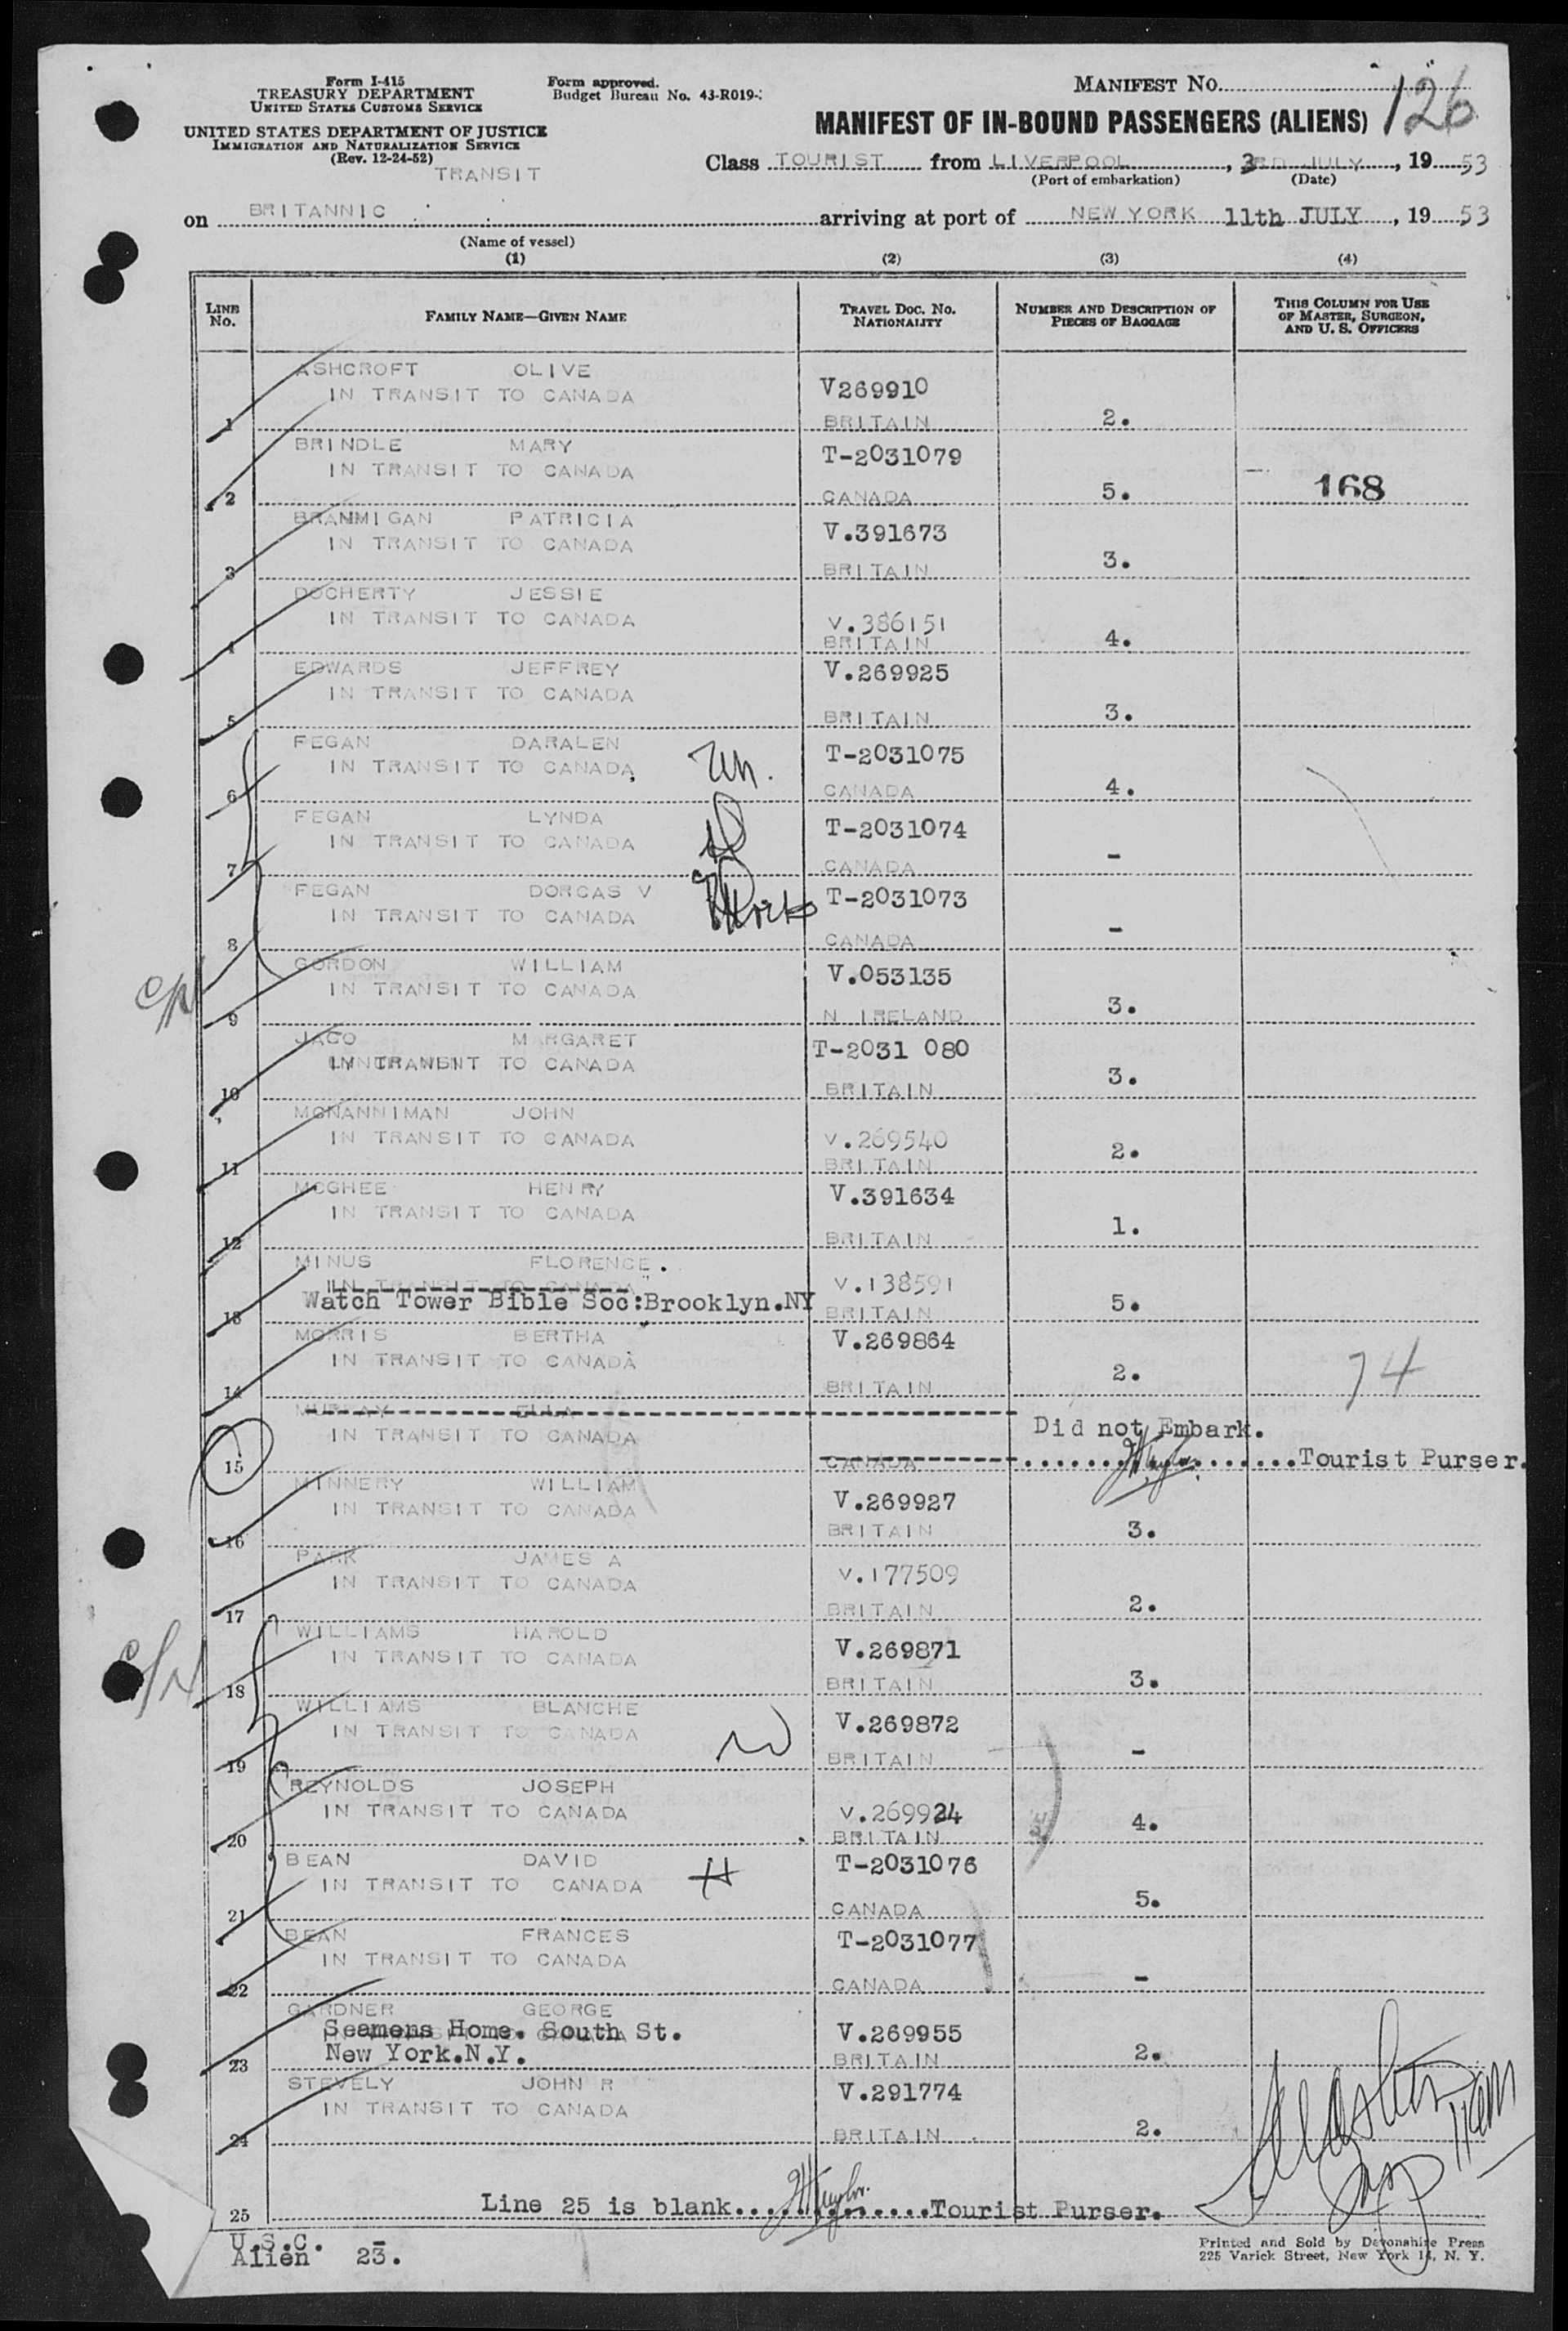 Form I-415
TREASURY DEPARTMENT
UNITED STATES CUSTOMS SERVICE
UNITED STATES DEPARTMENT OF JUSTICE
IMMIGRATION AND NATURALIZATION SERVICE
(Rev. 12-24-52)
TRANSIT
Form approved.
Budget Bureau No. 43-R019-
MANIFEST NO. 126
MANIFEST OF IN-BOUND PASSENGERS (ALIENS)
Class TOURIST from LIVERPOOL, 3RD JULY, 1953
(Port of embarkation) (Date)
on BRITANNIC arriving at port of NEW YORK 11th JULY, 1953
(Name of vessel)
(1) (2) (3) (4)
LINE NO. FAMILY NAME—GIVEN NAME TRAVEL DOC. NO. NATIONALITY NUMBER AND DESCRIPTION OF PIECES OF BAGGAGE THIS COLUMN FOR USE OF MASTER, SURGEON, AND U. S. OFFICERS
ASHCROFT OLIVE
IN TRANSIT TO CANADA V269910
1 BRITAIN 2.
BRINDLE MARY T-2031079
IN TRANSIT TO CANADA
2 CANADA 5. 168
BRANMIGAN PATRICIA V.391673
IN TRANSIT TO CANADA
3 BRITAIN 3.
DOCHERTY JESSIE
IN TRANSIT TO CANADA V.386151
4 BRITAIN 4.
EDWARDS JEFFREY V.269925
IN TRANSIT TO CANADA
5 BRITAIN 3.
FEGAN DARALEN T-2031075
IN TRANSIT TO CANADA
6 CANADA 4.
FEGAN LYNDA T-2031074
IN TRANSIT TO CANADA
7 CANADA -
FEGAN DORCAS V T-2031073
IN TRANSIT TO CANADA
8 CANADA -
GORDON WILLIAM V.053135
IN TRANSIT TO CANADA
9 N IRELAND 3.
JACO MARGARET T-2031 080
TRANSIT TO CANADA
10 BRITAIN 3.
MCNANNIMAN JOHN
IN TRANSIT TO CANADA V.269540
11 BRITAIN 2.
MCGHEE HENRY V.391634
IN TRANSIT TO CANADA
12 BRITAIN 1.
MINUS FLORENCE.
IN TRANSIT TO CANADA V.138591
Watch Tower Bible Soc:Brooklyn.NY
13 BRITAIN 5.
MORRIS BERTHA V.269864
IN TRANSIT TO CANADA
14 BRITAIN 2. 74
MURRAY ELLA
IN TRANSIT TO CANADA Did not Embark.
15 CANADA Tourist Purser.
MINNERY WILLIAM V.269927
IN TRANSIT TO CANADA
16 BRITAIN 3.
PARK JAMES A V.177509
IN TRANSIT TO CANADA
17 BRITAIN 2.
WILLIAMS HAROLD V.269871
IN TRANSIT TO CANADA
18 BRITAIN 3.
WILLIAMS BLANCHE V.269872
IN TRANSIT TO CANADA
19 BRITAIN -
REYNOLDS JOSEPH
IN TRANSIT TO CANADA V.269924
20 BRITAIN 4.
BEAN DAVID T-2031076
IN TRANSIT TO CANADA
21 CANADA 5.
BEAN FRANCES T-2031077
IN TRANSIT TO CANADA
22 CANADA -
GARDNER GEORGE
Seamens Home. South St. V.269955
New York.N.Y.
23 BRITAIN 2.
STEVELY JOHN R V.291774
IN TRANSIT TO CANADA
24 BRITAIN 2.
25 Line 25 is blank. Tourist Purser.
U.S.C. -
Alien 23.
Printed and Sold by Devonshire Press
225 Varick Street, New York 14, N. Y.